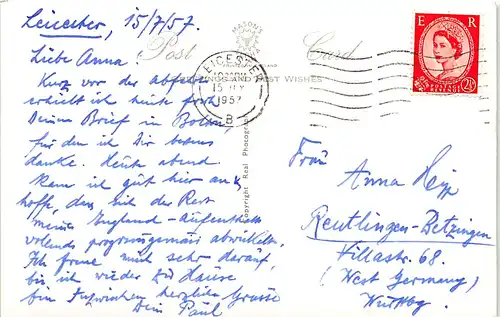 Leicester, 15/7/57.
Liebe Anna!
Kurz vor der Abfahrt
erhielt ich heute früh
Deinen Brief in Bolton,
für den ich Dir bestens
danke. Heute abend
kam ich gut hier an &
hoffe, dass sich der Rest
meines England-Aufenthalts
vollends programmgemäss abwickelt.
Ich freue mich sehr darauf,
bis ich wieder zu Hause
bin. Inzwischen herzliche Grüsse
Dein Paul
Post Card
MASON'S
GREETINGS AND BEST WISHES
LEICESTER
15 JLY
1957
B
Copyright Real Photograph
E R
POSTAGE REVENUE
2½D
Frau
Anna Hipp
Reutlingen-Betzingen
Villastr. 68.
(West Germany)
Württbg.